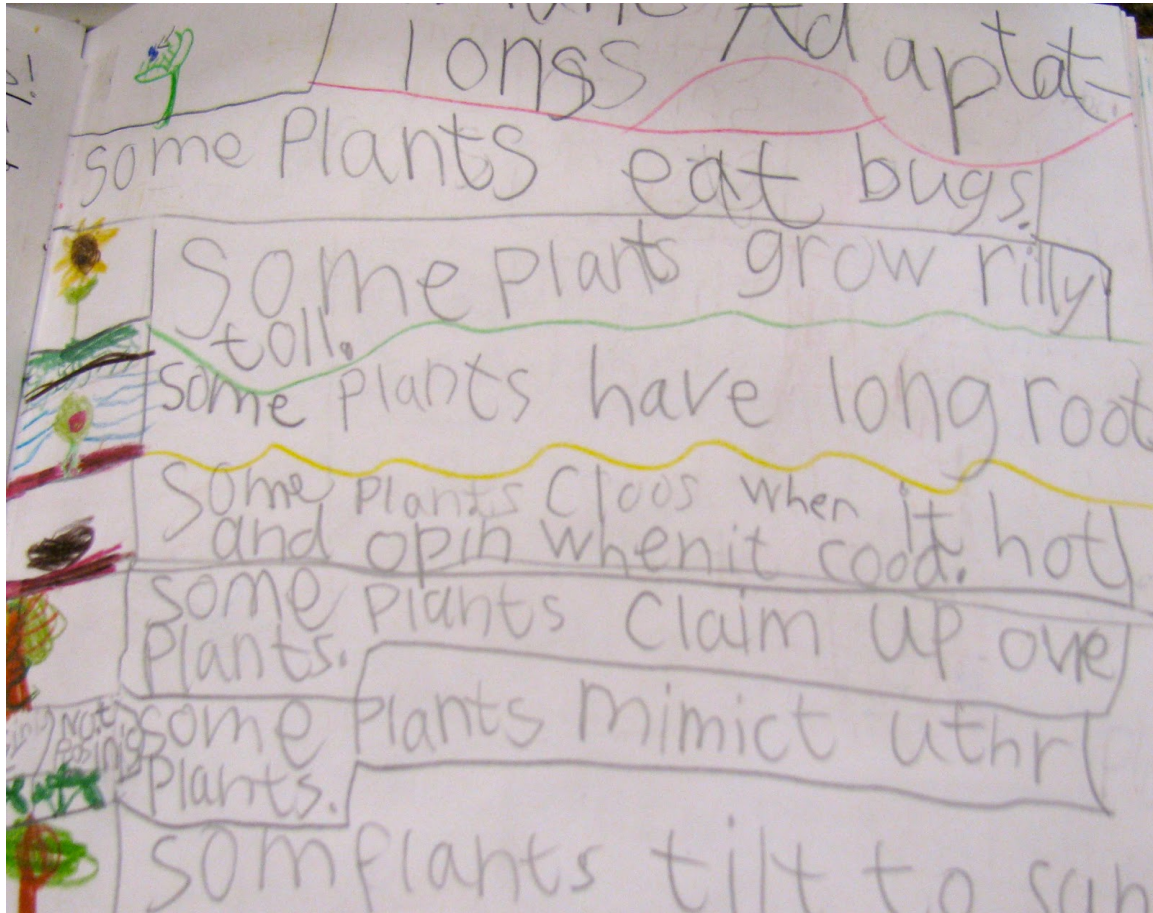 Adaptat-
Ionss
some Plants eat bugs.
Some plants grow rilly
toll.
some plants have long root
Some plants Cloos when it hot
and opin when it cood.
some plants Claim up ove
Plants.
Not
Posinis
some Plants mimict uthr
Plants.
som Plants tilt to sun